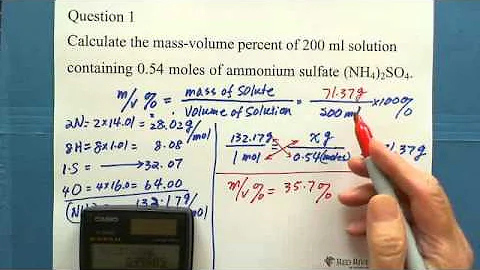 Question 1
Calculate the mass-volume percent of 200 ml solution
containing 0.54 moles of ammonium sulfate (NH4)2SO4.
m/v % = mass of solute / volume of solution = 71.37g / 200 ml × 100%
2N = 2 × 14.01 = 28.02 g/mol
8H = 8 × 1.01 = 8.08
1·S = → 32.07
4O = 4 × 16.0 = 64.00
132.17 g/mol
132.17g / 1 mol = x g / 0.54 (moles)
71.37g
m/v % = 35.7 %
CASIO
RED RIVER